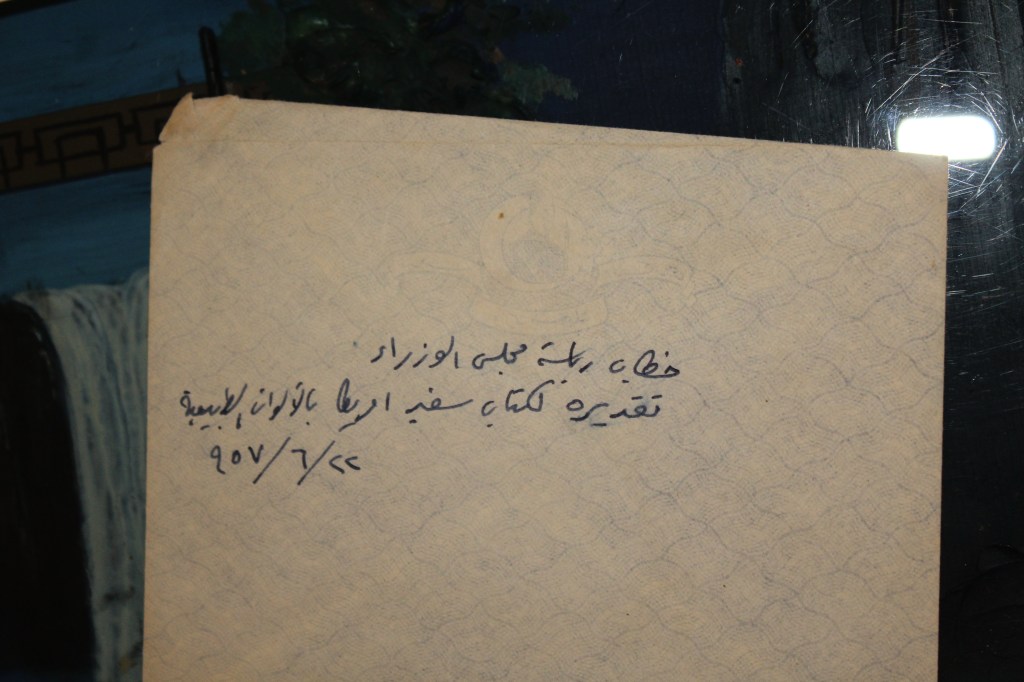 خطاب رئاسة مجلس الوزراء
تقديره لكتاب سفير امريكا بالألوان الطبيعية
٩٥٧/٦/٢٢